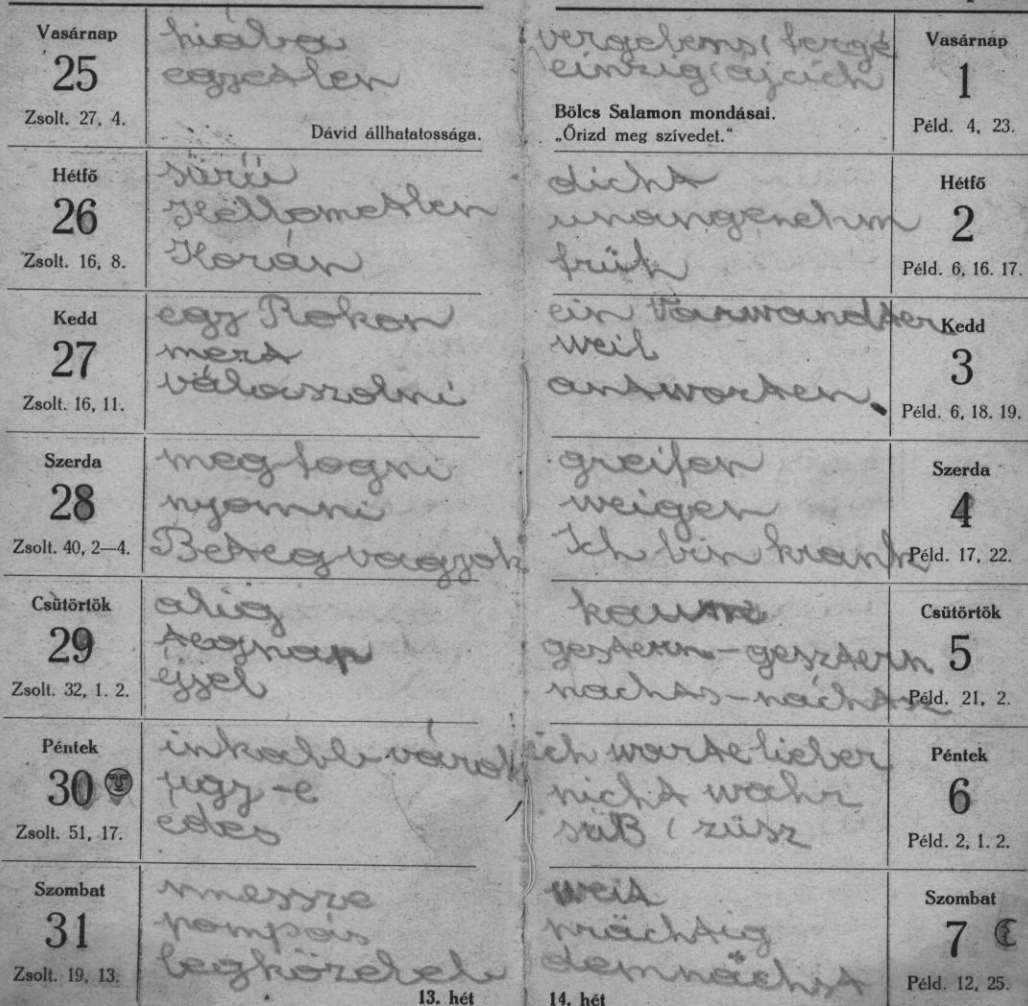 Vasárnap
25
Zsolt. 27, 4.
hiába
egyetlen
Dávid állhatatossága.
Hétfő
26
Zsolt. 16, 8.
sürü
Kellemetlen
Korán
Kedd
27
Zsolt. 16, 11.
egy Rokon
mert
válaszolni
Szerda
28
Zsolt. 40, 2—4.
meg fogni
nyomni
Beteg vagyok
Csütörtök
29
Zsolt. 32, 1. 2.
alig
tegnap
éjjel
Péntek
30
Zsolt. 51, 17.
inkabb várok
ugy -e
édes
Szombat
31
Zsolt. 19, 13.
messze
pompás
legközeleb
13. hét
vergebens (fergé
einzig (ájcich
Bölcs Salamon mondásai.
„Őrizd meg szívedet.“
Vasárnap
1
Péld. 4, 23.
dicht
unangenehm
früh
Hétfő
2
Péld. 6, 16. 17.
ein Varwandter
weil
antworten
Kedd
3
Péld. 6, 18. 19.
greifen
weigen
Ich bin krank
Szerda
4
Péld. 17, 22.
kaum
gestern - gesztern
nachts - náchtsz
Csütörtök
5
Péld. 21, 2.
ich warte lieber
nicht wahr
süß ( züsz
Péntek
6
Péld. 2, 1. 2.
weit
prächtig
demnächst
Szombat
7
Péld. 12, 25.
14. hét